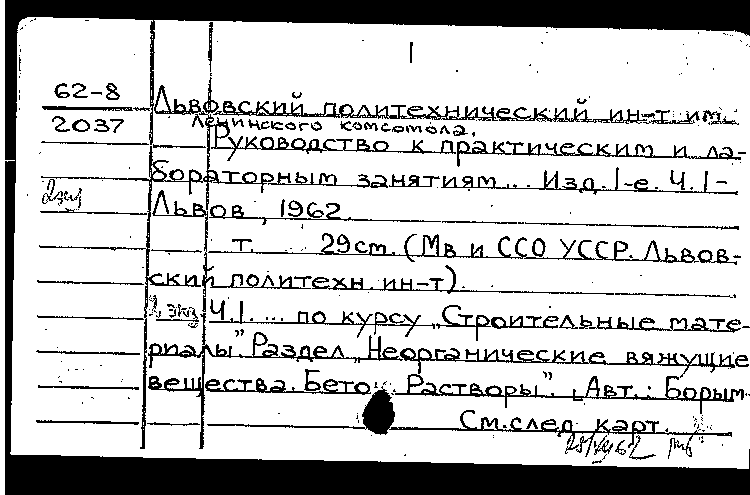 62-8
2037
Львовский политехнический ин-т им.
Ленинского комсомола.
Руководство к практическим и ла-
бораторным занятиям... Изд. 1-е. Ч. 1-
Львов, 1962.
т. 29 см. (Мв и ССО УССР. Львов-
ский политехн. ин-т).
2 экз. Ч. 1. ... по курсу „Строительные мате-
риалы". Раздел „Неорганические вяжущие
вещества. Бето Растворы". [Авт.: Борым-
См. след карт.